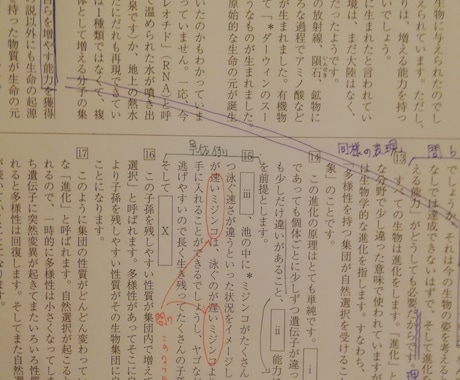 生物に与えられたのでし
えられています。ただし、
りは、増える能力を持っ
いでしょう。
に生まれたと言われてい
境は、まだ大陸はなく、
だったようです。
の放射線、隕石、鉱物に
ろな過程でアミノ酸など
が生まれました。有機物
て「*ダーウィンのスー
うなものが生まれました。
原始的な生命の元が誕生
いたのかもわかっていま
っていません。一応、今
レオチド」(RNA)と呼
温められた水が噴き出
泉ですか、地上の熱水
だだれも再現できてい
は一種類ではなくて、複
体として増える分子の集
を増やす能力を獲得
説以外にも生命の起源
持った物質が生命の元
問5
同様の表現
でしょうか。それは今の生物の姿を考える
なしでは達成できないはずで、そして進化
える能力」がどうしても必要だからです
13 すべての生物は進化をします。「進化」と
な分野で少し違った意味で使われています
は生物学的な進化を指します。すなわち、
多様性を持つ集団が自然選択を受けるこ
象」のことです。
14 この進化の原理はとても単純です。i
であっても個体ごとに少しずつ遺伝子が違っ
も少しだけ違いがあること、ii 能力に
を前提とします。
具体例
15 iii、池の中に*ミジンコがたくさん
つ泳ぐ速さが違うといった状況をイメージし
が速いミジンコは、泳ぐのが遅いミジンコよ
手に入れることができるでしょうし、ヤゴな
逃げやすいので長く生き残ってたくさんの子
そして X
16 この子孫を残しやすい性質が集団内で増え
選択」と呼ばれます。多様性があってそこに自
より子孫を残しやすい性質がその生物集団に
ことになります。
17 このように集団の性質がどんどん変わって
な「進化」と呼ばれます。自然選択が起こると
れるので、一時的に多様性は小さくなってしま
ち遺伝子に突然変異が起きてまたいろいろ性質
れると多様性は回復します。そしてまた自然選